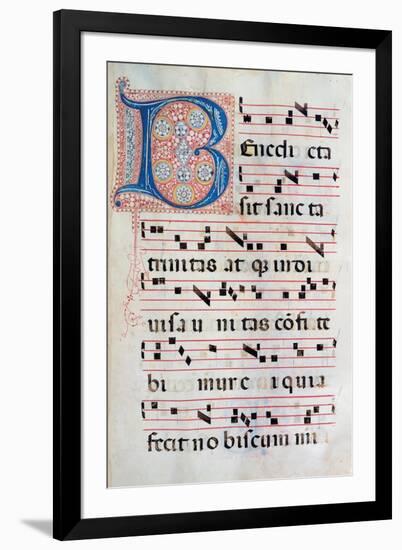 BEnedicta
sit sancta
trinitas at q; indi
uisa u nitas cōfite
bi mur e i quia
fecit no biscum mi